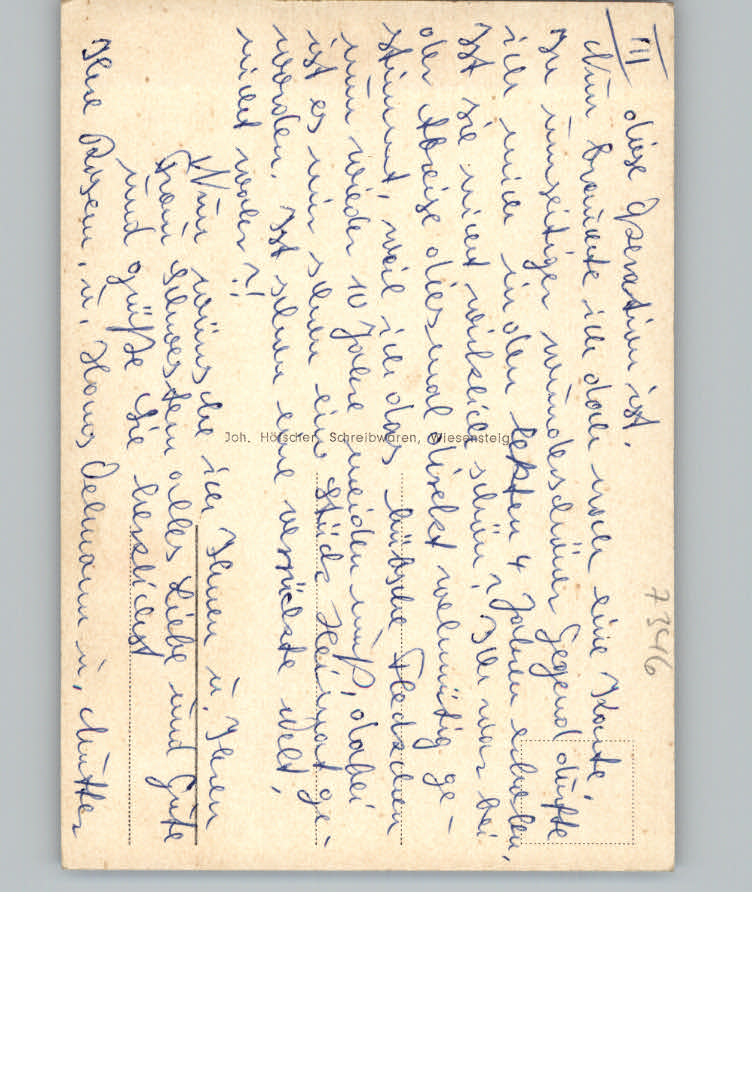 III diese Operation ist.
Nun brauchte ich doch noch eine Karte.
In umseitiger wunderschöner Gegend durfte
ich mich in den letzten 4 Jahren erholen.
Ist sie nicht wirklich schön? Ich war bei
der Abreise diesmal direkt wehmütig ge-
stimmt, weil ich das hübsche Fleckchen
nun wieder 10 Jahre meiden muß, dabei
ist es mir schon ein Stück Heimat ge-
worden. Ist schon eine verrückte Welt,
nicht wahr?!
Nun wünsche ich Ihnen u. Ihren
Schwestern alles Liebe und Gute
und grüße Sie herzlichst
Ihre u. Hans u. Mutter
Joh. Hörscher, Schreibwaren, Wiesensteig
7346